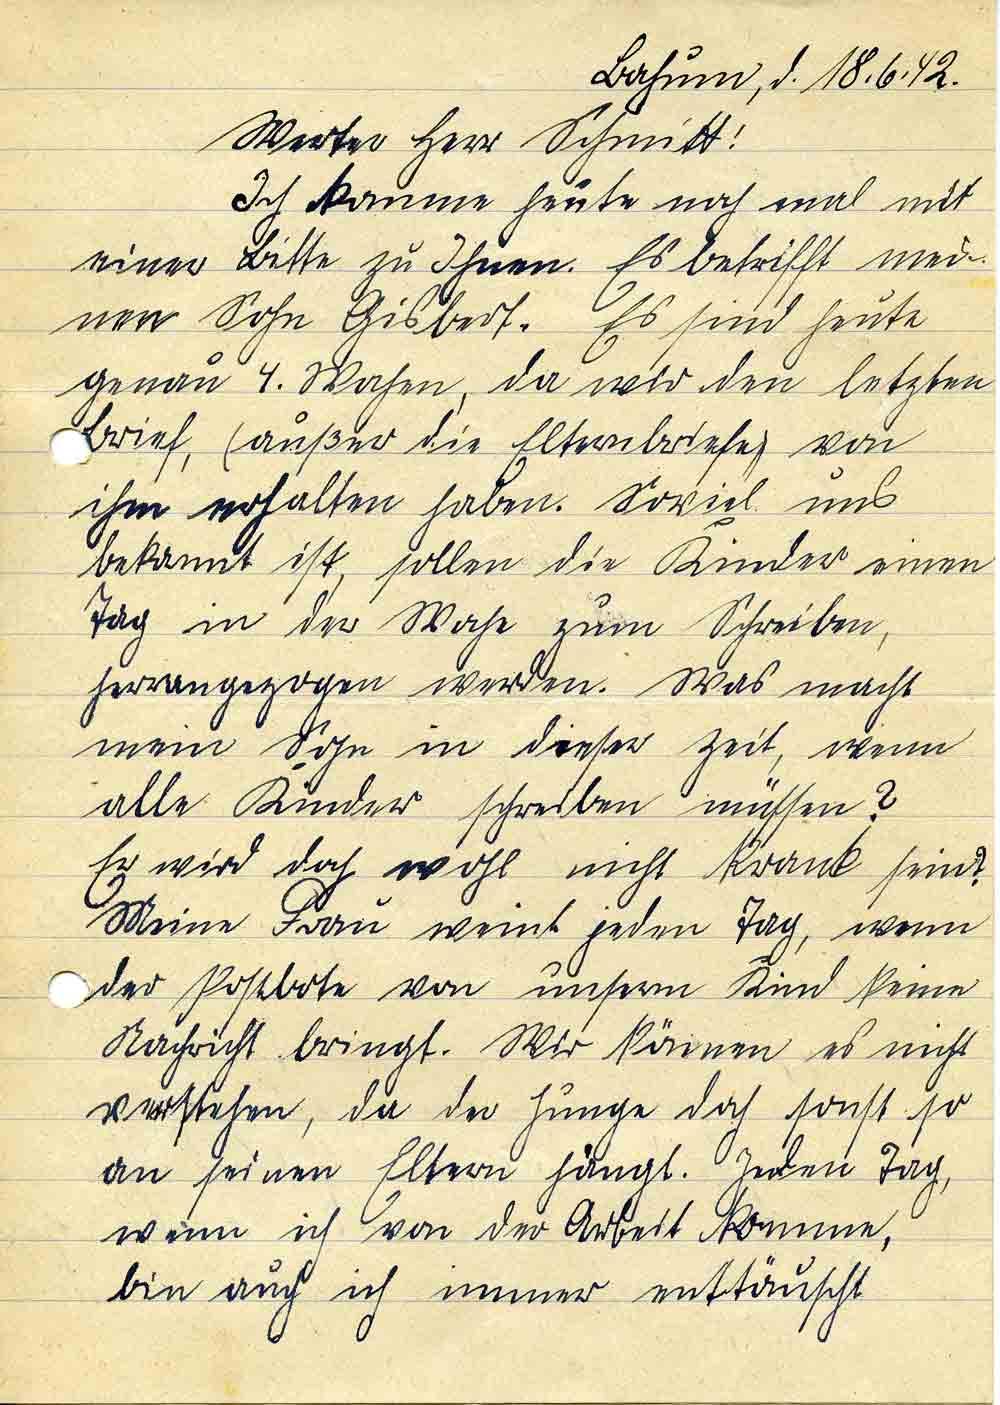 Bochum, d. 18.6.42.
Werter Herr Schmitt!
Ich komme heute noch mal mit
einer Bitte zu Ihnen. Es betrifft mei-
nen Sohn Gisbert. Es sind heute
genau 4. Wochen, da wir den letzten
Brief, (außer die Elternbriefe) von
ihm erhalten haben. Soviel uns
bekannt ist, sollen die Kinder einen
Tag in der Woche zum Schreiben,
herrangezogen werden. Was macht
mein Sohn in dieser Zeit, wenn
alle Kinder schreiben müssen?
Er wird doch wohl nicht krank sein?
Meine Frau weint jeden Tag, wenn
der Postbote von unsern Kind keine
Nachricht bringt. Wir können es nicht
verstehen, da der Junge doch sonst so
an seinen Eltern hängt. Jeden Tag,
wenn ich von der Arbeit komme,
bin auch ich immer enttäuscht